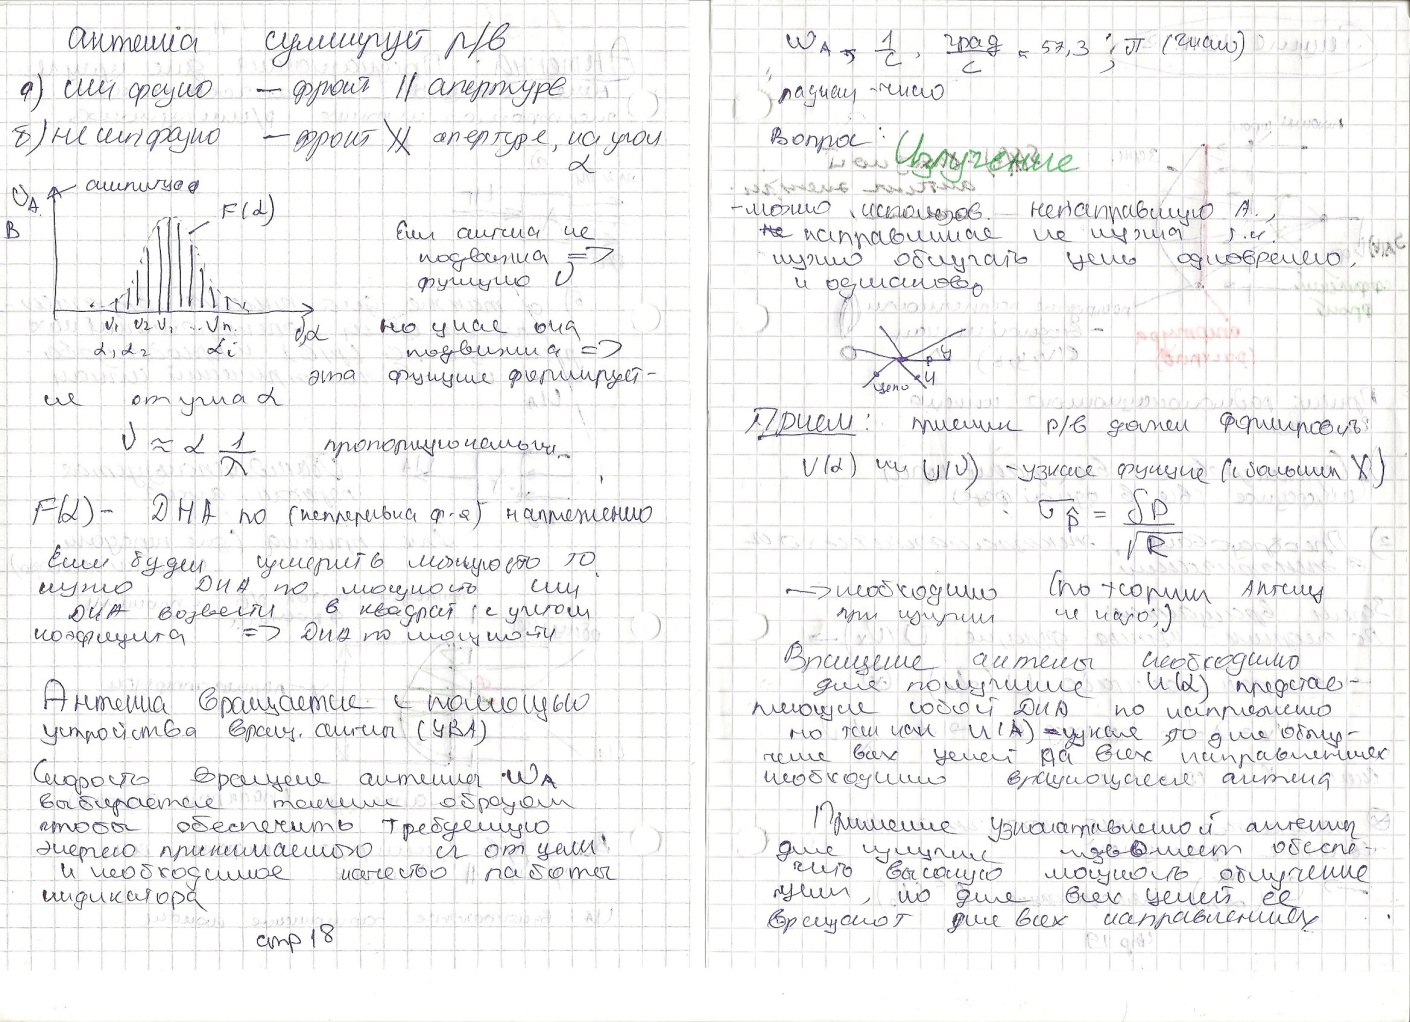 антенна суммирует р/в
а) синфазно — фронт || апертуре
б) не синфазно — фронт ∦ апертуре, на угол
α
U_A амплитуда
В
F(α)
Если антенна не
подвижна =>
функцию U
U₁ U₂ U₃ ... Uп. U,α
α₁ α₂ αi
но у нас она
подвижна =>
эта функция формирует-
ся от угла α
U ≈ α 1/λ пропорционально
F(α) – ДНА по (непрерывна ф-я) напряжению
Если будем измерять мощность то
нужно ДНА по мощность или
ДНА возвести в квадрат с учетом
коэфициента => ДНА по мощности
Антенна вращается с помощью
устройства вращ. антены (УВА)
Скорость вращение антенны ωA
выбирается таким образом
чтобы обеспечить требуемую
энергию принимаемого от цели
и необходимое качество работы
индикатора
стр 18
ωA = 1/c, град/c = 57,3 ; π (число)
радиан - число
Вопрос:
Излучение
- можно использов. ненаправленую А.,
направленная не нужна т.к.
нужно облучать цель одновремено,
и одинаково
Ц
Ц
цель
Прием: приемн р/в должен формировать
U(α) или U(U) - узкие функцие (с большим X)
σp̂ = δP/√R
→ необходимо (по теории Антенн
при излучении не надо;)
Вращение антены необходимо
для получение U(α) представ-
ляющие собой ДНА по напряжению
но так как U(A) - узкие, то для облу-
чение всех целей на всех направлениях
необходимо вращающаяся антена
Применение узконаправленой антенны
для излучение позволяет обеспе-
чить высокую мощность облучение
цели, но для всех целей её
вращают для всех направлениях